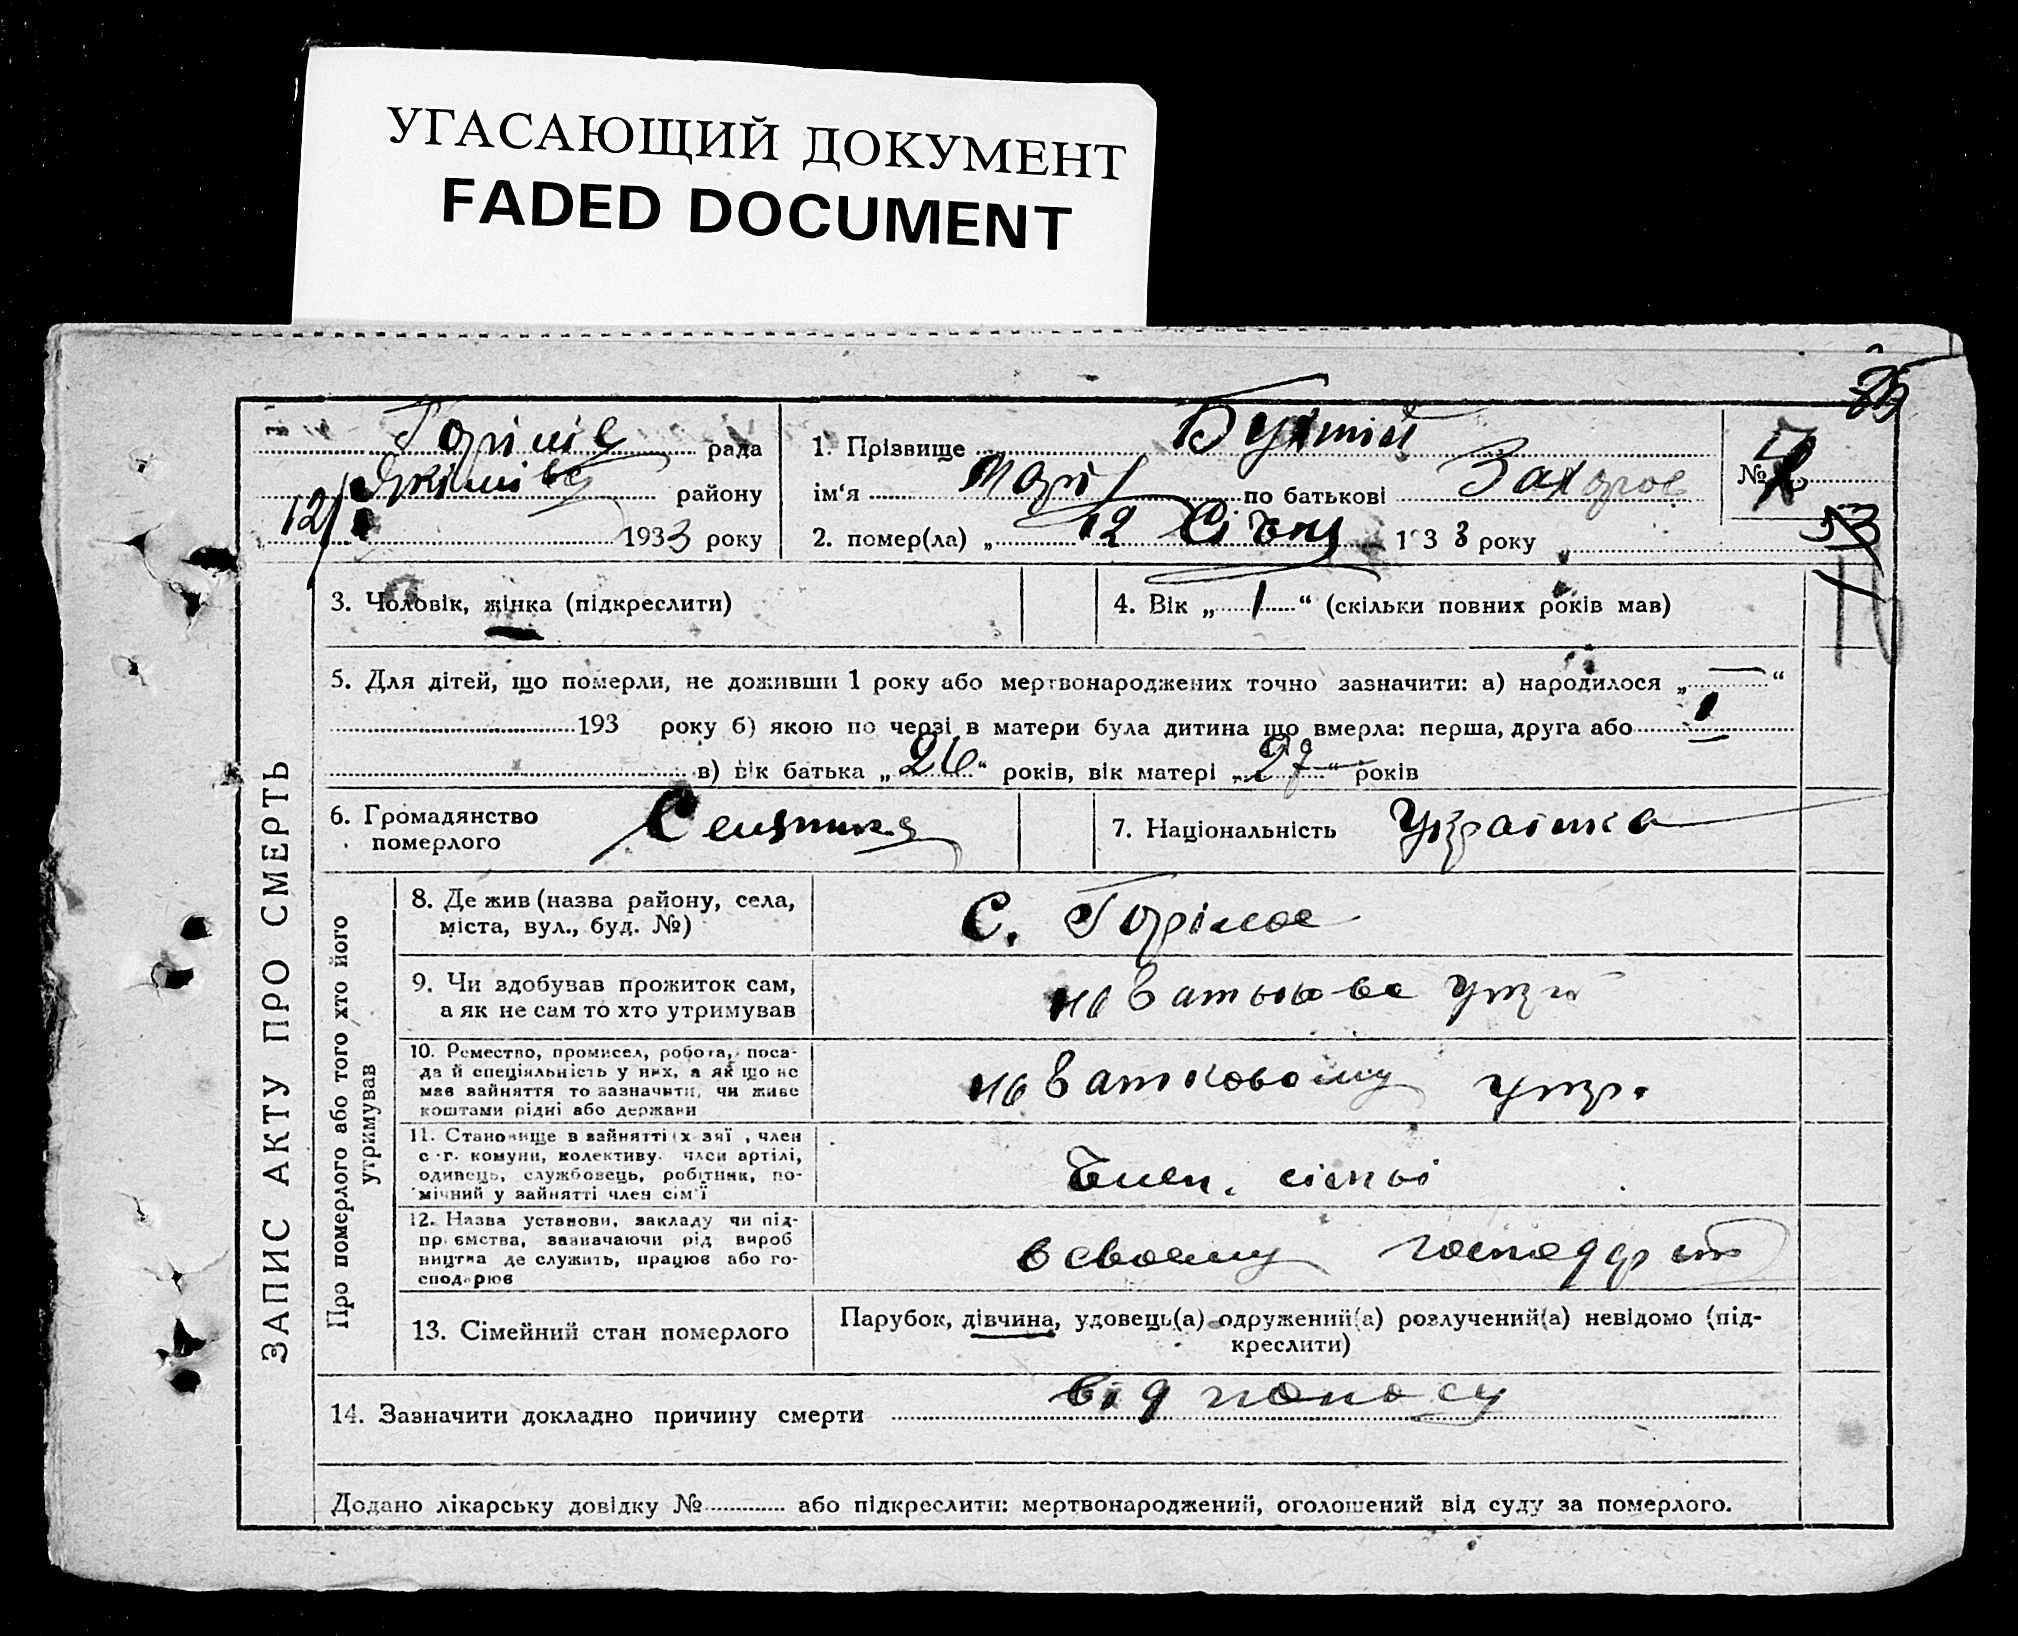 УГАСАЮЩИЙ ДОКУМЕНТ
FADED DOCUMENT
рада
району
12/I 1933 року
1. Прізвище
ім‘я Марія по батькові Захаров
2. помер(ла) „ 12 Січня 1933 року
№
53
3. Чоловік, жінка (підкреслити)
4. Вік „ 1 “ (скільки повних років мав)
5. Для дітей, що померли, не доживши 1 року або мертвонароджених точно зазначити: а) народилося „ — “
193 року б) якою по черзі в матери була дитина що вмерла: перша, друга або I
в) вік батька „ 26 “ років, вік матері „ 27 “ років
6. Громадянство
померлого
Селянка
7. Національність Українка
ЗАПИС АКТУ ПРО СМЕРТЬ
Про померлого або того хто його
утримував
8. Де жив (назва району, села,
міста, вул., буд. №)
С. Горілое
9. Чи здобував прожиток сам,
а як не сам то хто утримував
на батькове утр
10. Ремество, промисел, робота, поса-
да й спеціяльність у них, а як що не
мав зайняття то зазначити, чи живе
коштами рідні або держави
на батковому утр.
11. Становище в зайнятті (хазяї, член
с.-г. комуни, колективу, член артілі,
одинець, службовець, робітник, по-
мічний у зайнятті член сім'ї
Член. сімьі
12. Назва установи, закладу чи під-
приємства, зазначаючи рід вироб
ництва де служить, працює або го-
сподарює
в своему господарст
13. Сімейний стан померлого
Парубок, дівчина, удовець(а) одружений(а) розлучений(а) невідомо (під-
креслити)
14. Зазначити докладно причину смерти від поносу
Додано лікарську довідку № або підкреслити: мертвонароджений, оголошений від суду за померлого.